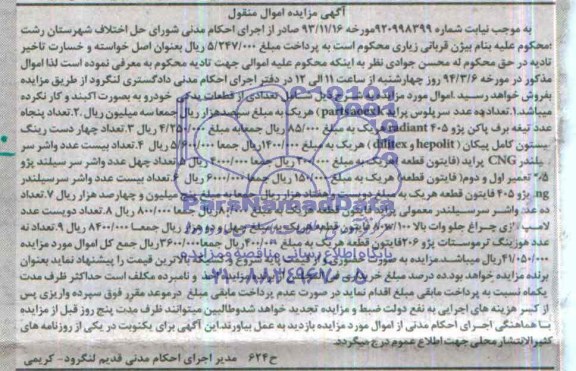 آگهی مزایده اموال منقول
به موجب نیابت شماره ۹۲۰۹۹۸۳۹۹ مورخه ۹۳/۱۱/۱۶ صادر از اجرای احکام مدنی شورای حل اختلاف شهرستان رشت
محکوم علیه بنام بیژن قربانی زیاری محکوم است به پرداخت مبلغ ۵/۲۴۷/۰۰۰ ریال بعنوان اصل خواسته و خسارت تاخیر
تادیه در حق محکوم له محسن جوادی نظر به اینکه محکوم علیه اموالی جهت تادیه محکوم به معرفی نموده است لذا اموال
مذکور در مورخه ۹۴/۳/۶ روز چهارشنبه از ساعت ۱۱ الی ۱۲ در دفتر اجرای احکام مدنی دادگستری لنگرود از طریق مزایده
بفروش خواهد رسید. اموال مورد تعدادی از قطعات یدکی خودرو به صورت آکبند و کار نکرده
میباشد ۱. تعداد ده عدد سرپلوس پراید parts هریک به مبلغ سیصد هزار ریال جمعا سه میلیون ریال ۲. تعداد پنجاه
عدد تیغه برف پاکن پژو ۴۰۵ radiant هریک به مبلغ ۸۵/۰۰۰ ریال جمعا به مبلغ ۴/۲۵۰/۰۰۰ ریال ۳. تعداد چهار دست رینگ
پیستون کامل پیکان (hepolit و dfitex) هریک به مبلغ ۱۴۰۰/۰۰۰ ریال جمعا ۵/۶۰۰/۰۰۰ ریال ۴. تعداد بیست عدد واشر سر
سیلندر CNG پراید (فایتون قطعه) هریک به مبلغ ۲۰۰/۰۰۰ ریال جمعا ۴/۰۰۰/۰۰۰ ریال ۵. تعداد چهل عدد واشر سر سیلندر پژو
تعمیر اول و دوم (فایتون قطعه) هریک به مبلغ ۱۵۰/۰۰۰ ریال جمعا ۶/۰۰۰/۰۰۰ ریال ۶. تعداد بیست عدد واشر سر سیلندر
پژو ۴۰۵ فایتون قطعه هریک به مبلغ دویست و هفتاد هزار ریال جمعا به مبلغ پنج میلیون و چهارصد هزار ریال ۷. تعداد
ده عدد واشر سرسیلندر معمولی پراید فایتون قطعه هریک به مبلغ ۸۰/۰۰۰ ریال جمعا ۸۰۰/۰۰۰ ریال ۸. تعداد دویست عدد
لامپ گازی چراغ جلو وات بالا فایتون قطعه هریک به مبلغ چهل و دو هزار ریال جمعا ۸۴۰۰/۰۰۰ ریال ۹. تعداد نه
عدد هوزینگ ترموستات پژو ۲۰۶ فایتون قطعه هریک به مبلغ ۴۰۰/۰۰۰ ریال جمعا ۳۶۰۰/۰۰۰ ریال جمع کل اموال مورد مزایده
۴۱/۰۵۰/۰۰۰ ریال میباشد. مزایده به صورت بالاترین قیمت را پیشنهاد نماید بعنوان
برنده مزایده خواهد بود. ده درصد مبلغ و نامبرده مکلف است حداکثر ظرف مدت
یکماه نسبت به پرداخت مابقی مبلغ اقدام نماید در صورت عدم پرداخت مابقی مبلغ در موعد مقرر فوق سپرده واریزی پس
از کسر هزینه های اجرایی به نفع دولت ضبط و مزایده تجدید خواهد شد و طالبین میتوانند ظرف مدت پنج روز قبل از مزایده
با هماهنگی اجرای احکام مدنی از اموال مورد مزایده بازدید به عمل بیاورند. این آگهی برای یک نوبت در یکی از روزنامه های
کثیرالانتشار محلی جهت اطلاع عموم درج میگردد.
ح ۶۲۴ مدیر اجرای احکام مدنی قدیم لنگرود - کریمی
ParsNamadData
پایگاه اطلاع رسانی مناقصه و مزایده
۰۲۱-۸۸۳۴۹۶۷۰-۵